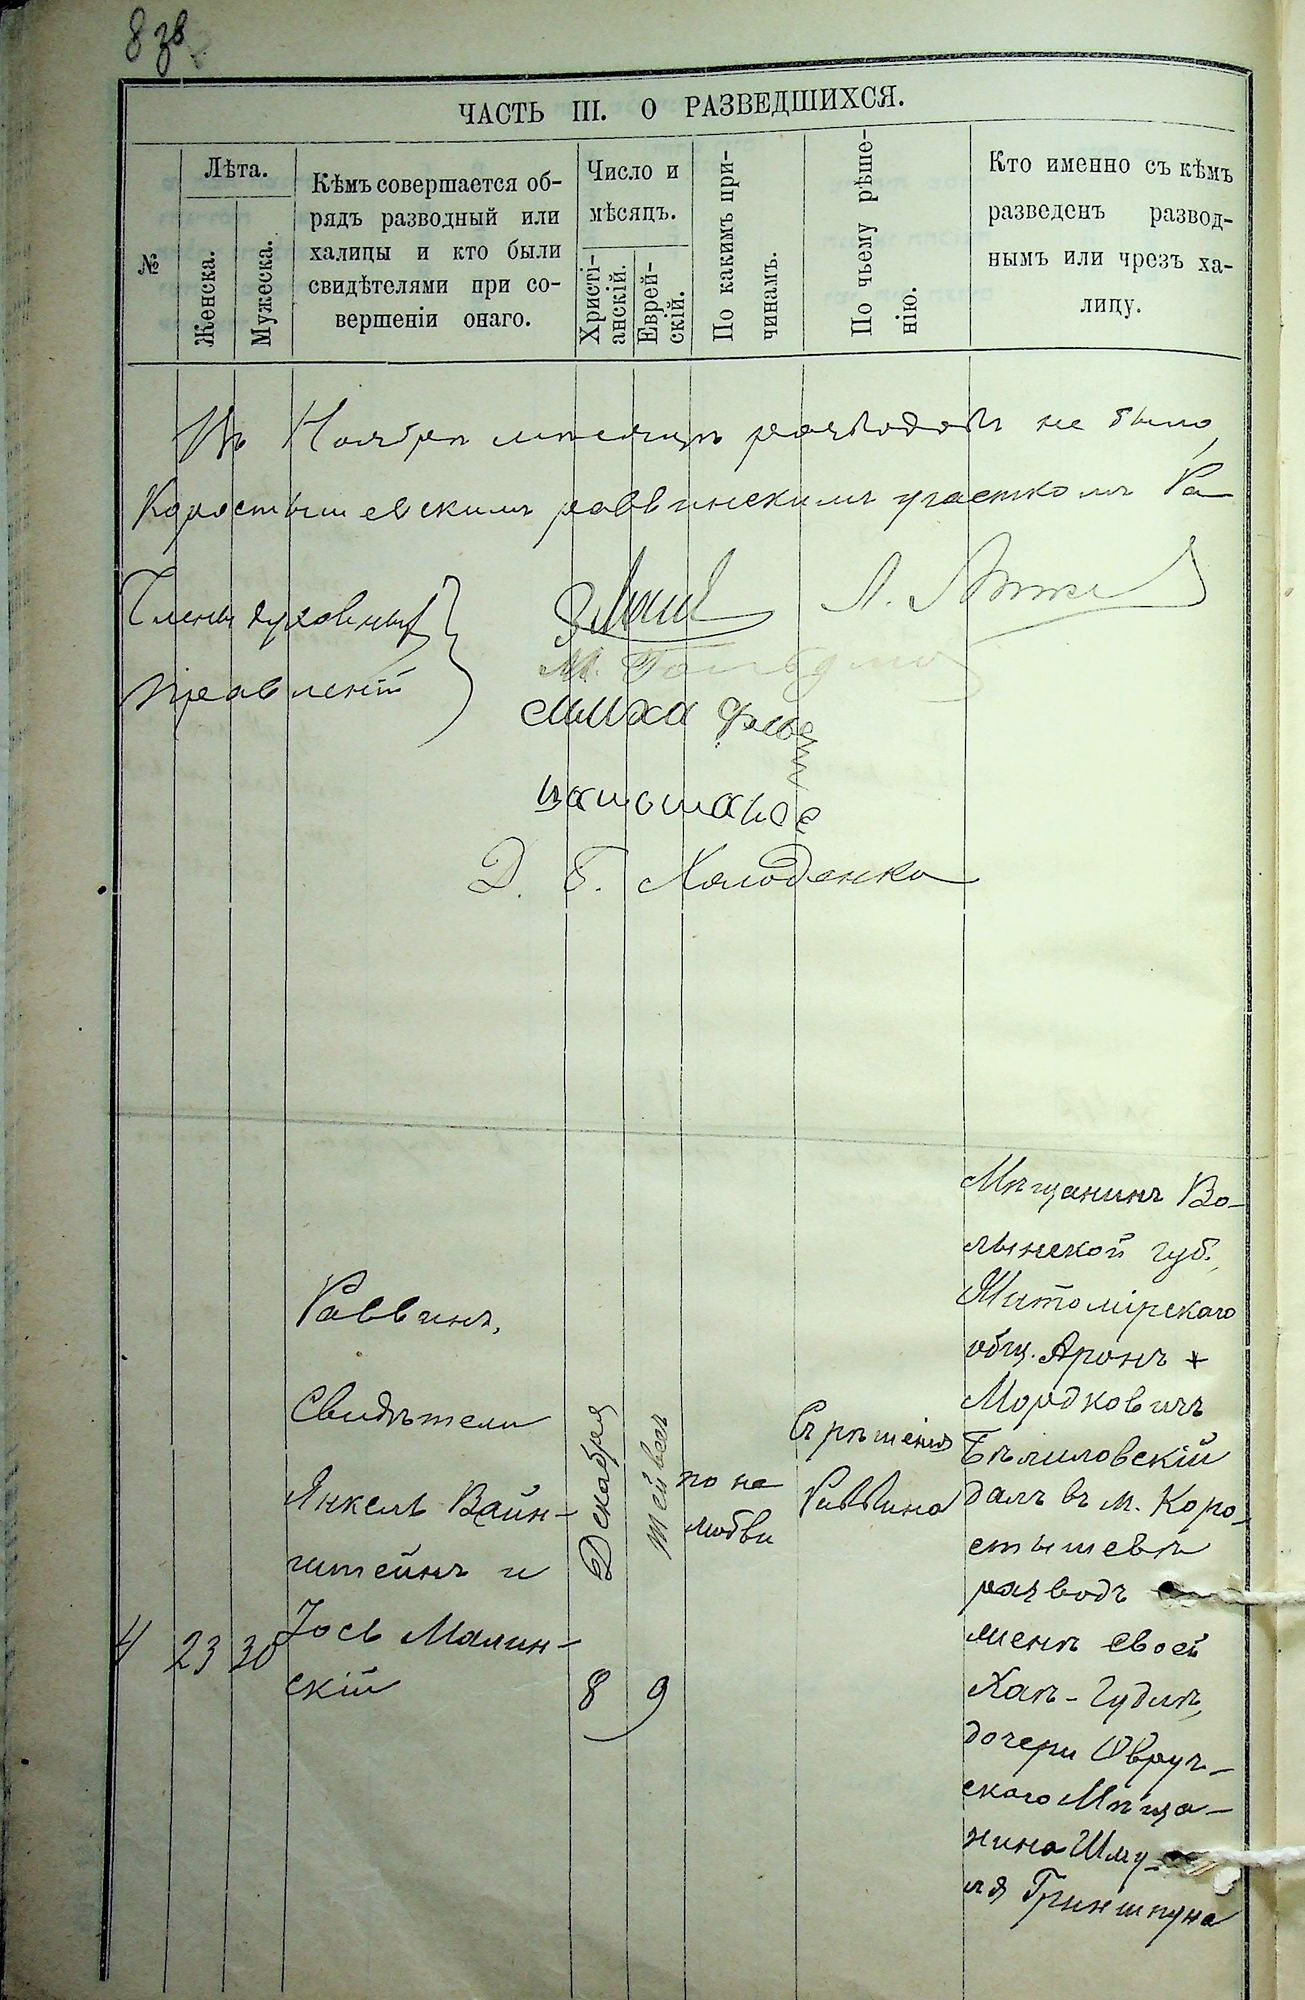 8 зв
ЧАСТЬ III. О РАЗВЕДШИХСЯ.
№
Лѣта.
Женска.
Мужеска.
Кѣмъ совершается об-
рядъ разводный или
халицы и кто были
свидѣтелями при со-
вершеніи онаго.
Число и
мѣсяцъ.
Христі-
анскій.
Еврей-
скій.
По какимъ при-
чинамъ.
По чьему рѣше-
нію.
Кто именно съ кѣмъ
разведенъ развод-
нымъ или чрезъ ха-
лицу.
Въ Ноябрѣ мѣсяцѣ разводовъ не было,
Коростышевскимъ раввинскимъ участкомъ Ра
Члены духовныхъ
правленій
А.
М.
симха
Д. Б. Холоденко
4
23
30
Раввинъ,
Свидѣтели
Янкель Вайн-
штейнъ и
Іось Малин-
скій
Декабря
8
Тейвесъ
9
по не
любви
Съ рѣшенія
Раввина
Мѣщанинъ Во-
лынской губ.,
Житомірскаго
общ. Аронъ +
Мордковичъ
Бѣлиловскій
далъ въ м. Коро-
стышевѣ
разводъ
женѣ своей
Хаѣ-Гудлѣ,
дочери Овруч-
скаго Мѣща-
нина Шму-
ля Гриншпуна